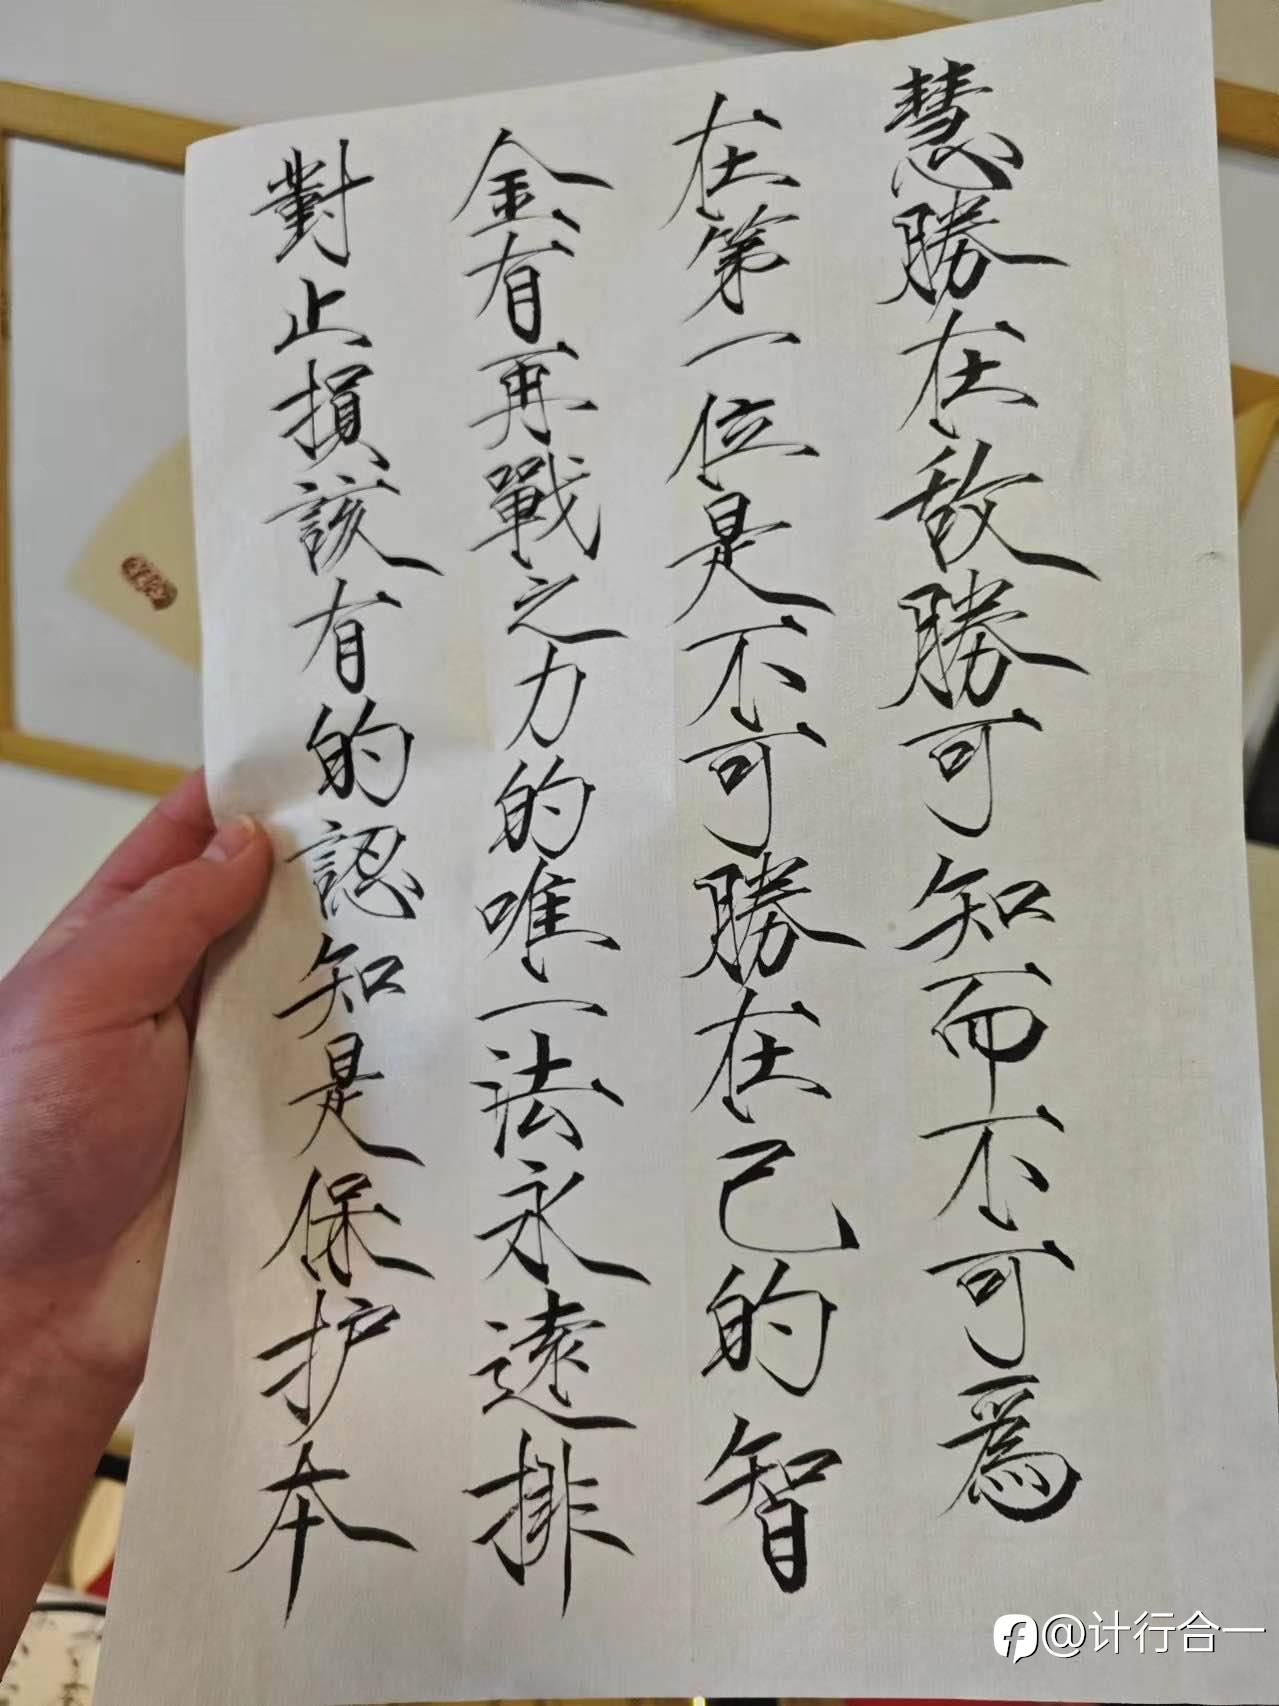 對止損該有的認知是保护本
金有再戰之力的唯一法永遠排
在第一位是不可勝在己的智
慧勝在敌勝可知而不可為
@计行合一